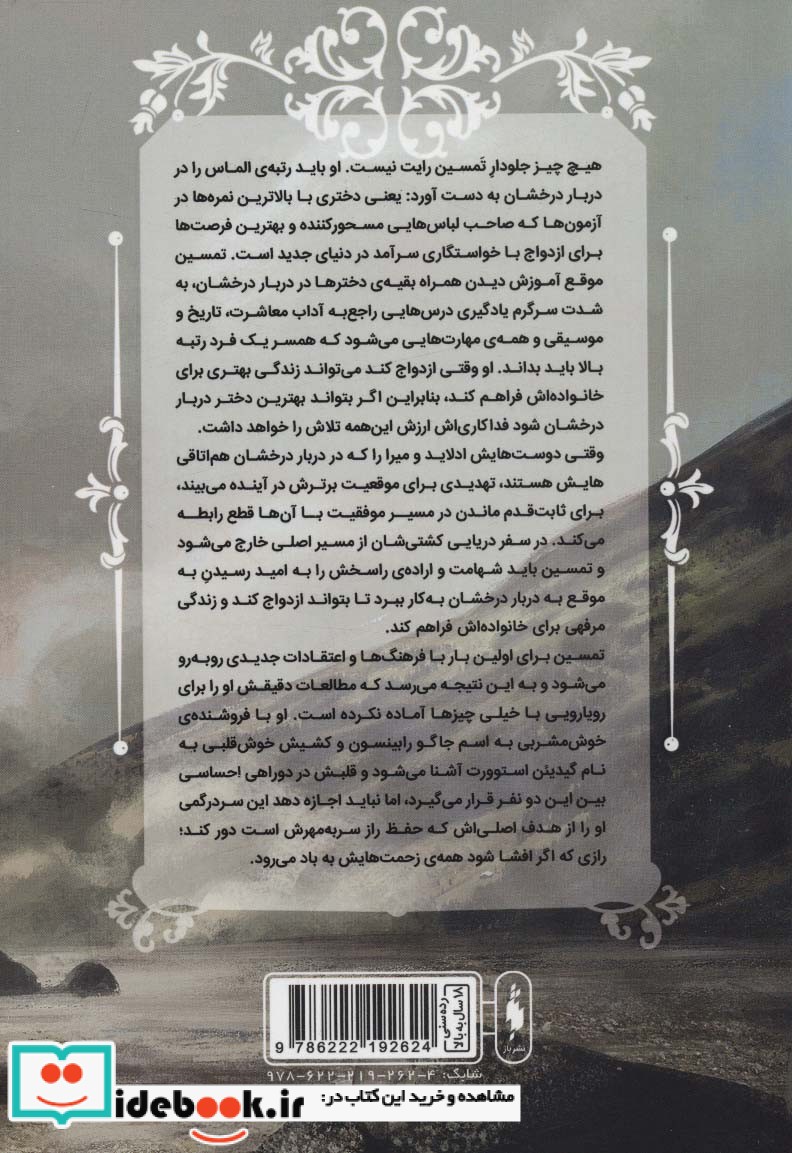 هیچ چیز جلودارِ تَمسین رایت نیست. او باید رتبه‌ی الماس را در
دربار درخشان به دست آورد: یعنی دختری با بالاترین نمره‌ها در
آزمون‌ها که صاحب لباس‌هایی مسحورکننده و بهترین فرصت‌ها
برای ازدواج با خواستگاری سرآمد در دنیای جدید است. تمسین
موقع آموزش دیدن همراه بقیه‌ی دخترها در دربار درخشان، به
شدت سرگرم یادگیری درس‌هایی راجع‌به آداب معاشرت، تاریخ و
موسیقی و همه‌ی مهارت‌هایی می‌شود که همسر یک فرد رتبه
بالا باید بداند. او وقتی ازدواج کند می‌تواند زندگی بهتری برای
خانواده‌اش فراهم کند، بنابراین اگر بتواند بهترین دختر دربار
درخشان شود فداکاری‌اش ارزش این‌همه تلاش را خواهد داشت.
وقتی دوست‌هایش ادلاید و میرا را که در دربار درخشان هم‌اتاقی
هایش هستند، تهدیدی برای موقعیت برترش در آینده می‌بیند،
برای ثابت‌قدم ماندن در مسیر موفقیت با آن‌ها قطع رابطه
می‌کند. در سفر دریایی کشتی‌شان از مسیر اصلی خارج می‌شود
و تمسین باید شهامت و اراده‌ی راسخش را به امید رسیدنِ به
موقع به دربار درخشان به‌کار ببرد تا بتواند ازدواج کند و زندگی
مرفهی برای خانواده‌اش فراهم کند.
تمسین برای اولین بار با فرهنگ‌ها و اعتقادات جدیدی روبه‌رو
می‌شود و به این نتیجه می‌رسد که مطالعات دقیقش او را برای
رویارویی با خیلی چیزها آماده نکرده است. او با فروشنده‌ی
خوش‌مشربی به اسم جاگو رابینسون و کشیش خوش‌قلبی به
نام گیدیئن استوورت آشنا می‌شود و قلبش در دوراهی احساسی
بین این دو نفر قرار می‌گیرد، اما نباید اجازه دهد این سردرگمی
او را از هدف اصلی‌اش که حفظ راز سربه‌مهرش است دور کند؛
رازی که اگر افشا شود همه‌ی زحمت‌هایش به باد می‌رود.
رده‌سنی
۱۸ سال به بالا
نشرباژ
9 786222 192624
شابک: ۹۷۸-۶۲۲-۲۱۹-۲۶۲-۴
مشاهده و خرید این کتاب در:
idebook.ir